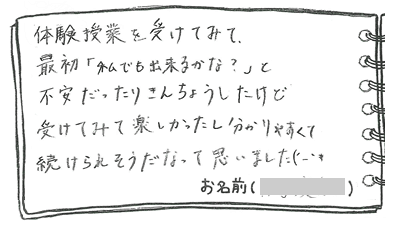 体験授業を受けてみて、
最初「私でも出来るかな？」と
不安だったりきんちょうしたけど
受けてみて楽しかったし分かりやすくて
続けられそうだなって思いました(^-^*
お名前( )